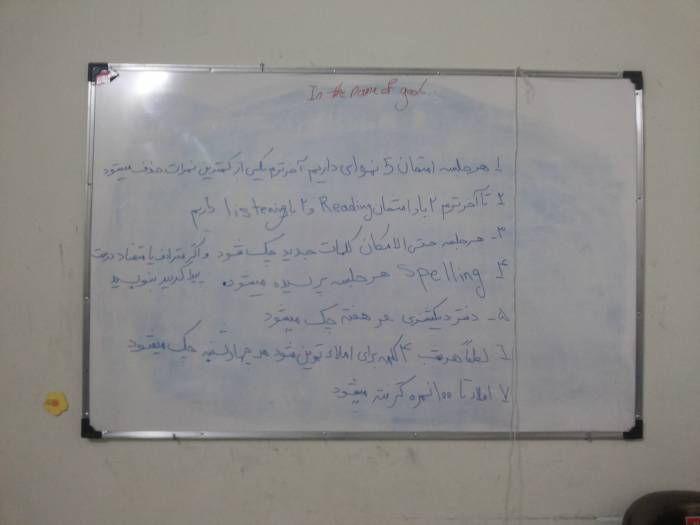 In the name of god
1 هر جلسه امتحان 5 نمره‌ای داریم آخر ترم یکی از کمترین نمرات حذف میشود
2 تا آخر ترم 2 بار امتحان Reading و 2 بار listening داریم
۳- هر جلسه حتی الامکان کلمات جدید چک شود و اگر مترادف یا متضاد درست پیدا کردید بنویسید
۴ Spelling هر جلسه پرسیده میشود.
۵- دفتر دیکشنری هر هفته چک میشود
6 لطفاً هر شب ۴ کلمه برای املاء تمرین شود هر چهارشنبه چک میشود
۷ املاء تا ۱۰۰ نمره گرفته میشود